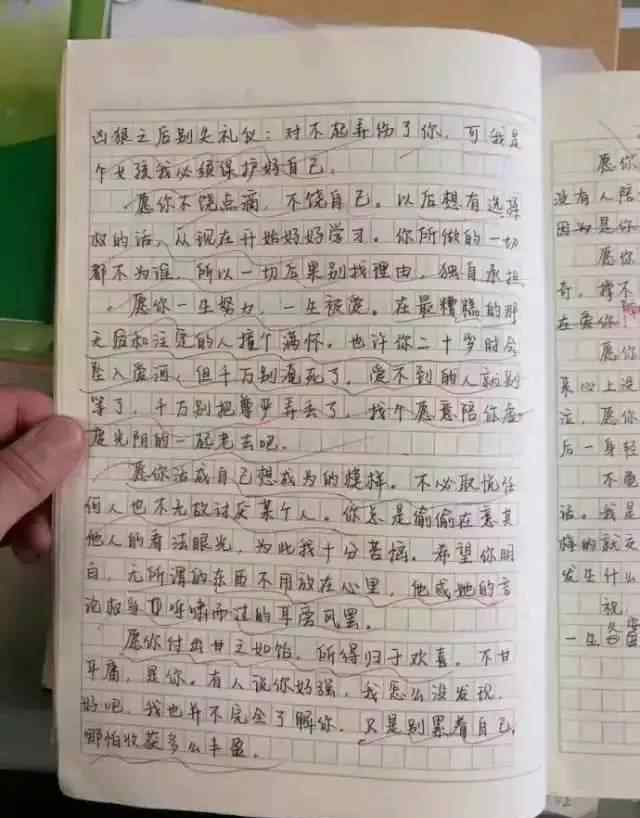 凶狠之后别失礼仪：对不起弄伤了你，可我是
个女孩我必须保护好自己。
愿你不饶点病，不饶自己。以后想有选择
权的话，从现在开始好好学习。你所做的一切
都不为谁，所以一切后果别找理由，独自承担。
愿你一生努力，一生被爱。在最糟糕的那
天后和注定的人撞个满怀。也许你二十岁时会
坠入爱河，但千万别淹死了，爱不到的人就别
等了，千万别把尊严弄丢了，找个愿意陪你虚
度光阴的一起老去吧。
愿你活成自己想成为的模样。不必取悦任
何人也不无故讨厌某个人。你总是偷偷在意其
他人的看法眼光，为此我十分苦恼。希望你明
白，无所谓的东西不用放在心里，他或她的言
论权当呼啸而过的耳旁风罢。
愿你付出甘之如饴，所得归于欢喜。不甘
平庸，是你。有人说你好强，我怎么没发现，
好吧，我也并不完全了解你，只是别累着自己，
哪怕收获多么丰盈。
愿你
没有人陪
因为是你
愿你
奇，撑不
在爱你
愿你
来心上没
泣，愿你
后一身轻
不
话。我是
悔的就
发生什么
祝
一生